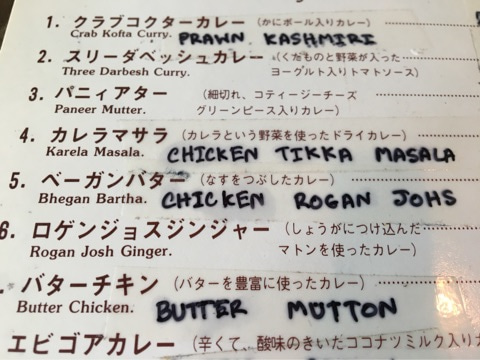 1. クラブコクターカレー (かにボール入りカレー)
Crab Kofta Curry. PRAWN KASHMIRI
2. スリーダベッシュカレー (くだものと野菜が入った
Three Darbesh Curry. ヨーグルト入りトマトソース)
3. パニィアター (細切れ、コティージーチーズ
Paneer Mutter. グリーンピース入りカレー)
4. カレラマサラ (カレラという野菜を使ったドライカレー)
Karela Masala. CHICKEN TIKKA MASALA
5. ベーガンバター (なすをつぶしたカレー)
Bhegan Bartha. CHICKEN ROGAN JOHS
6. ロゲンジョスジンジャー (しょうがにつけ込んだ
Rogan Josh Ginger. マトンを使ったカレー)
. バターチキン (バターを豊富に使ったカレー)
Butter Chicken. BUTTER MUTTON
エビゴアカレー (辛くて、酸味のきいたココナツミルク入りカ